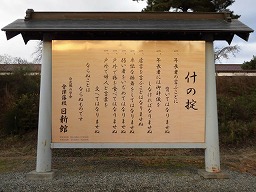 什の掟
一、年長者の言ふことに背いてはなりませぬ
一、年長者には御辞儀をしなければなりませぬ
一、虚言を言ふことはなりませぬ
一、卑怯な振舞をしてはなりませぬ
一、弱い者をいぢめてはなりませぬ
一、戸外で物を食べてはなりませぬ
一、戸外で婦人と言葉を交へてはなりませぬ
ならぬことはならぬものです
會津藩校 日新館